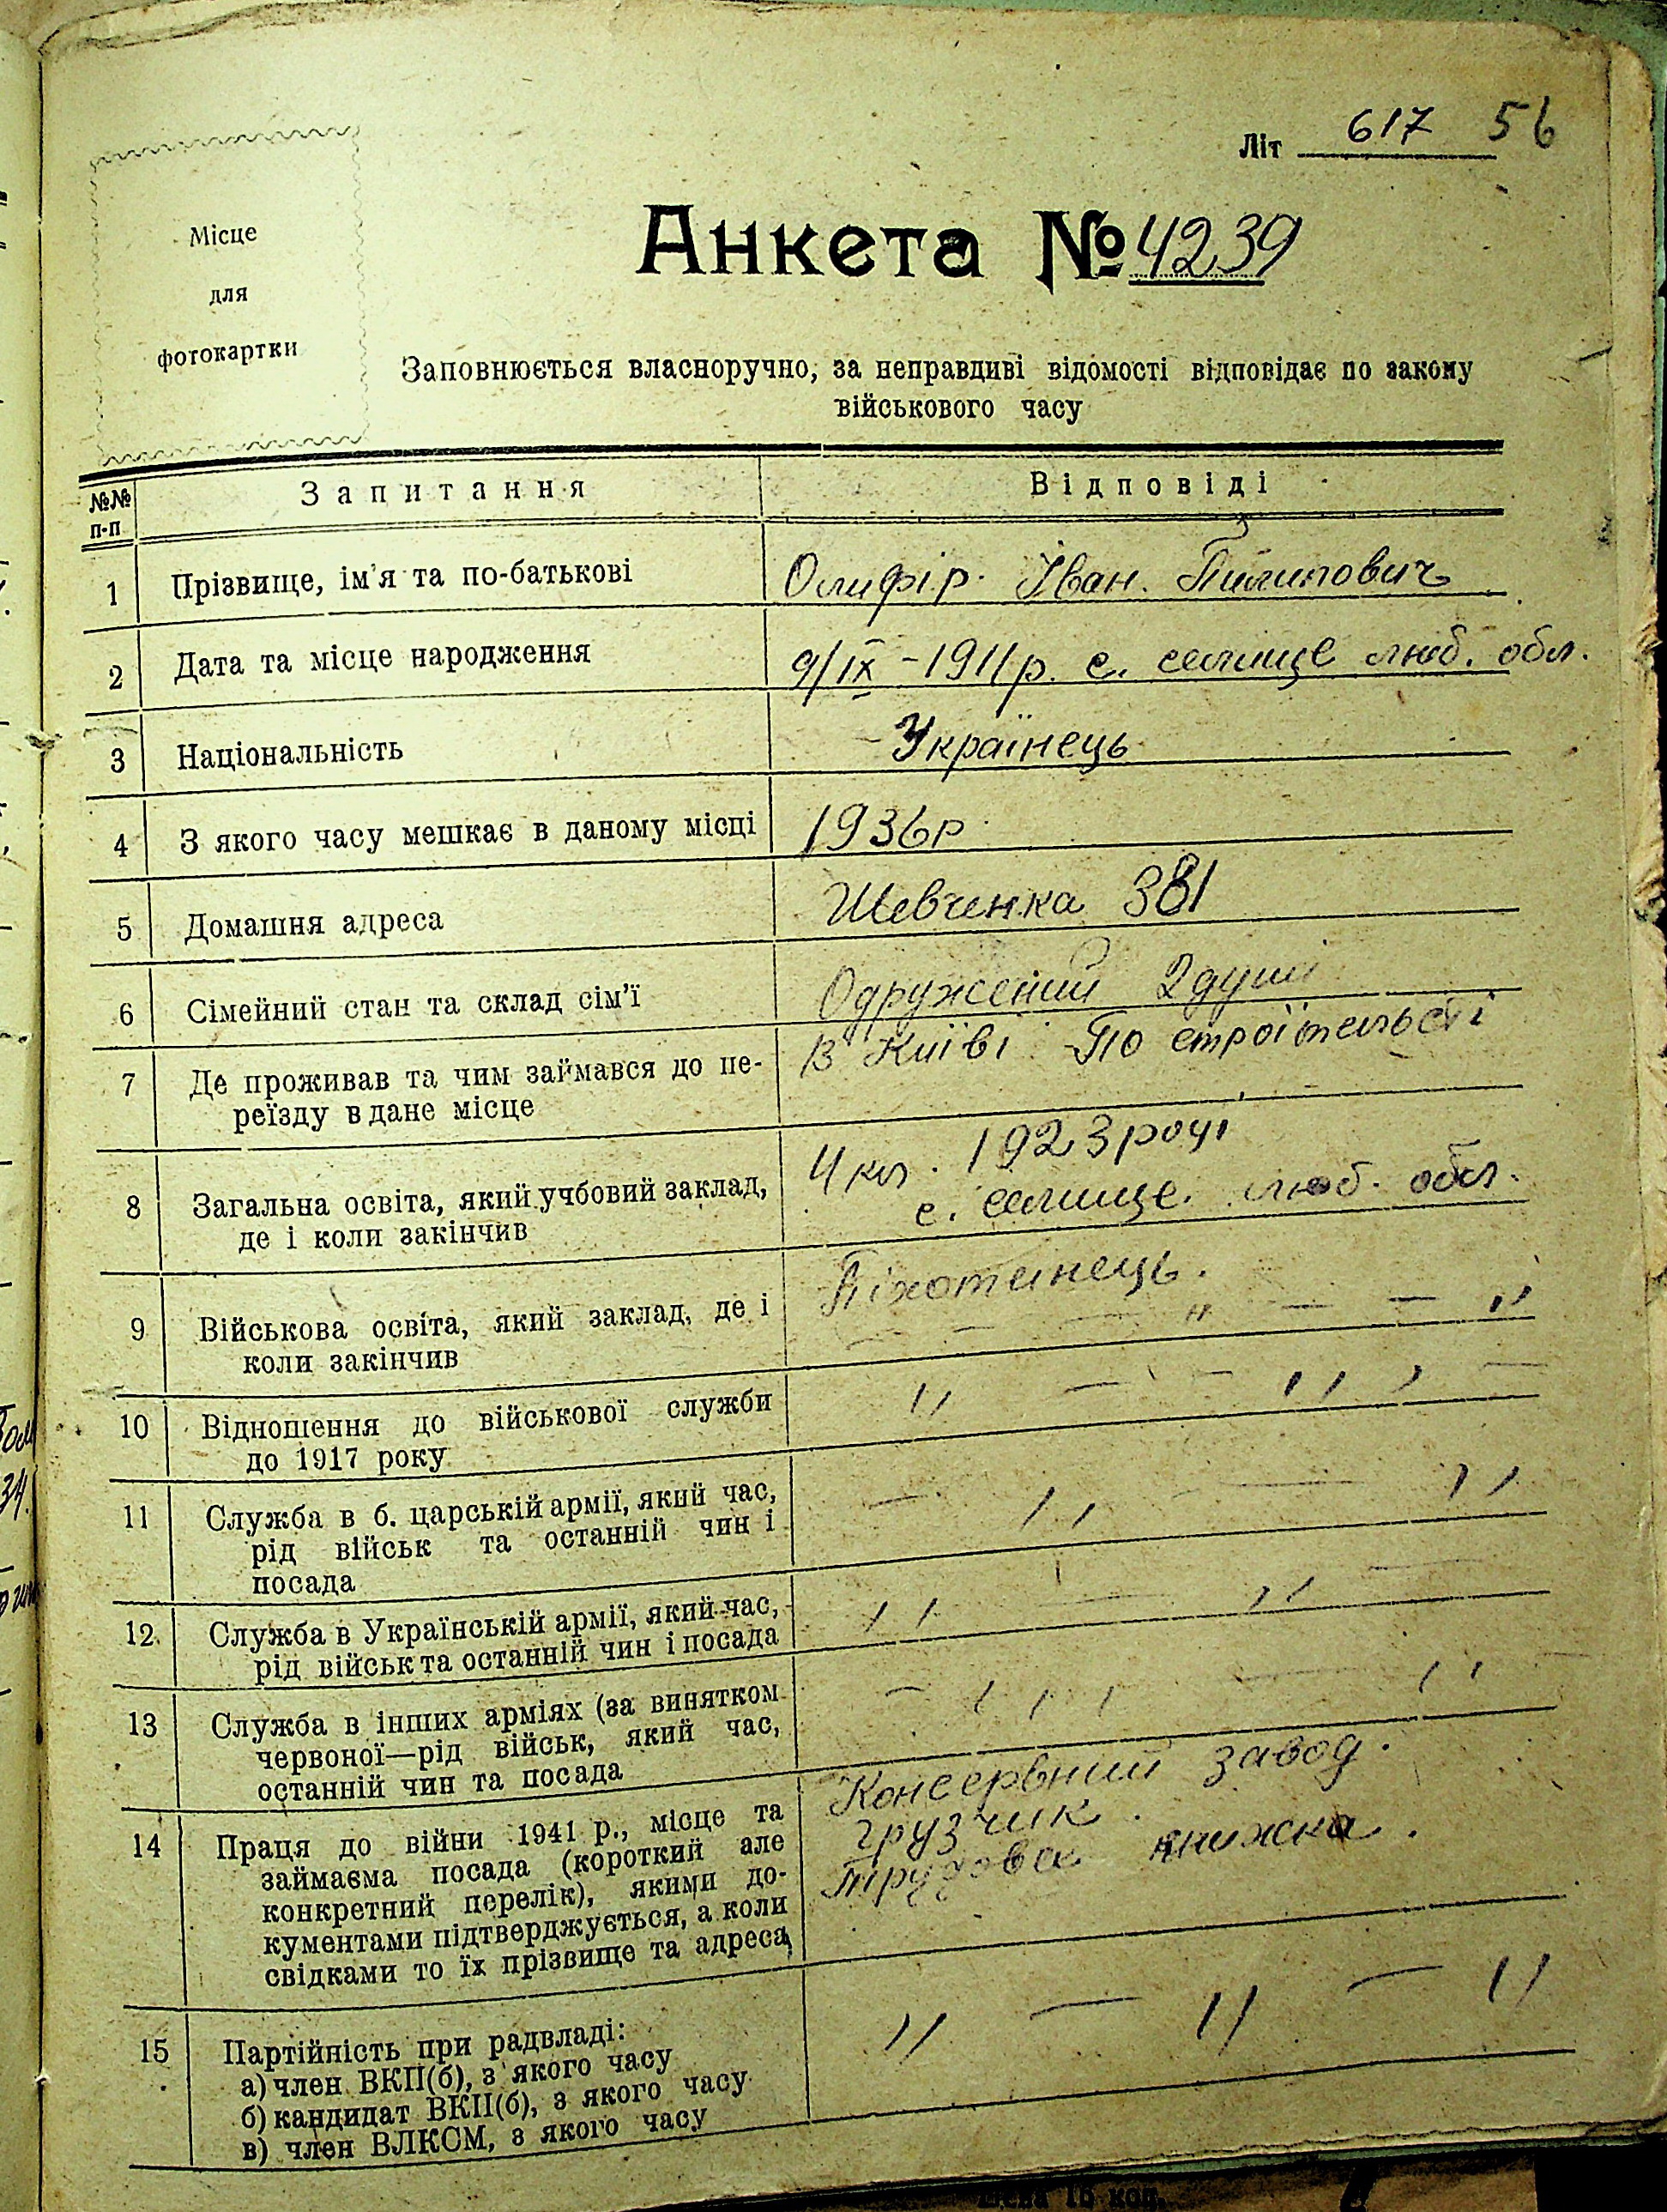 617 56
Літ
Місце
для
фотокартки
Анкета № 4239
Заповнюється власноручно, за неправдиві відомості відповідає по закому
військового часу
№№ п-п Запитання Відповіді
1 Прізвище, ім'я та по-батькові Олифір. Іван. Пилипович
2 Дата та місце народження 9/IX - 1911 р. с. селище люб. обл.
3 Національність - Українець
4 З якого часу мешкає в даному місці 1936р
5 Домашня адреса Шевченка 381
6 Сімейний стан та склад сім'ї Одружений 2 душі
7 Де проживав та чим займався до пе- В Київі По строїтельсті
реїзду в дане місце
8 Загальна освіта, який учбовий заклад, 4 кл. 1923 році
де і коли закінчив с. селище. люб. обл.
9 Військова освіта, який заклад, де і Піхотинець.
коли закінчив — — — " — — "
10 Відношення до військової служби " — — " —
до 1917 року
11 Служба в б. царській армії, який час, — " — "
рід військ та останній чин і
посада
12 Служба в Українській армії, який час, " — " —
рід військ та останній чин і посада
13 Служба в інших арміях (за винятком — " — "
червоної—рід військ, який час,
останній чин та посада
14 Праця до війни 1941 р., місце та Консервний завод.
займаєма посада (короткий але грузчик.
конкретний перелік), якими до- Трудова книжка.
кументами підтверджується, а коли
свідками то їх прізвище та адреса
15 Партійність при радвладі: " — " — "
а) член ВКП(б), з якого часу
б) кандидат ВКП(б), з якого часу
в) член ВЛКСМ, з якого часу